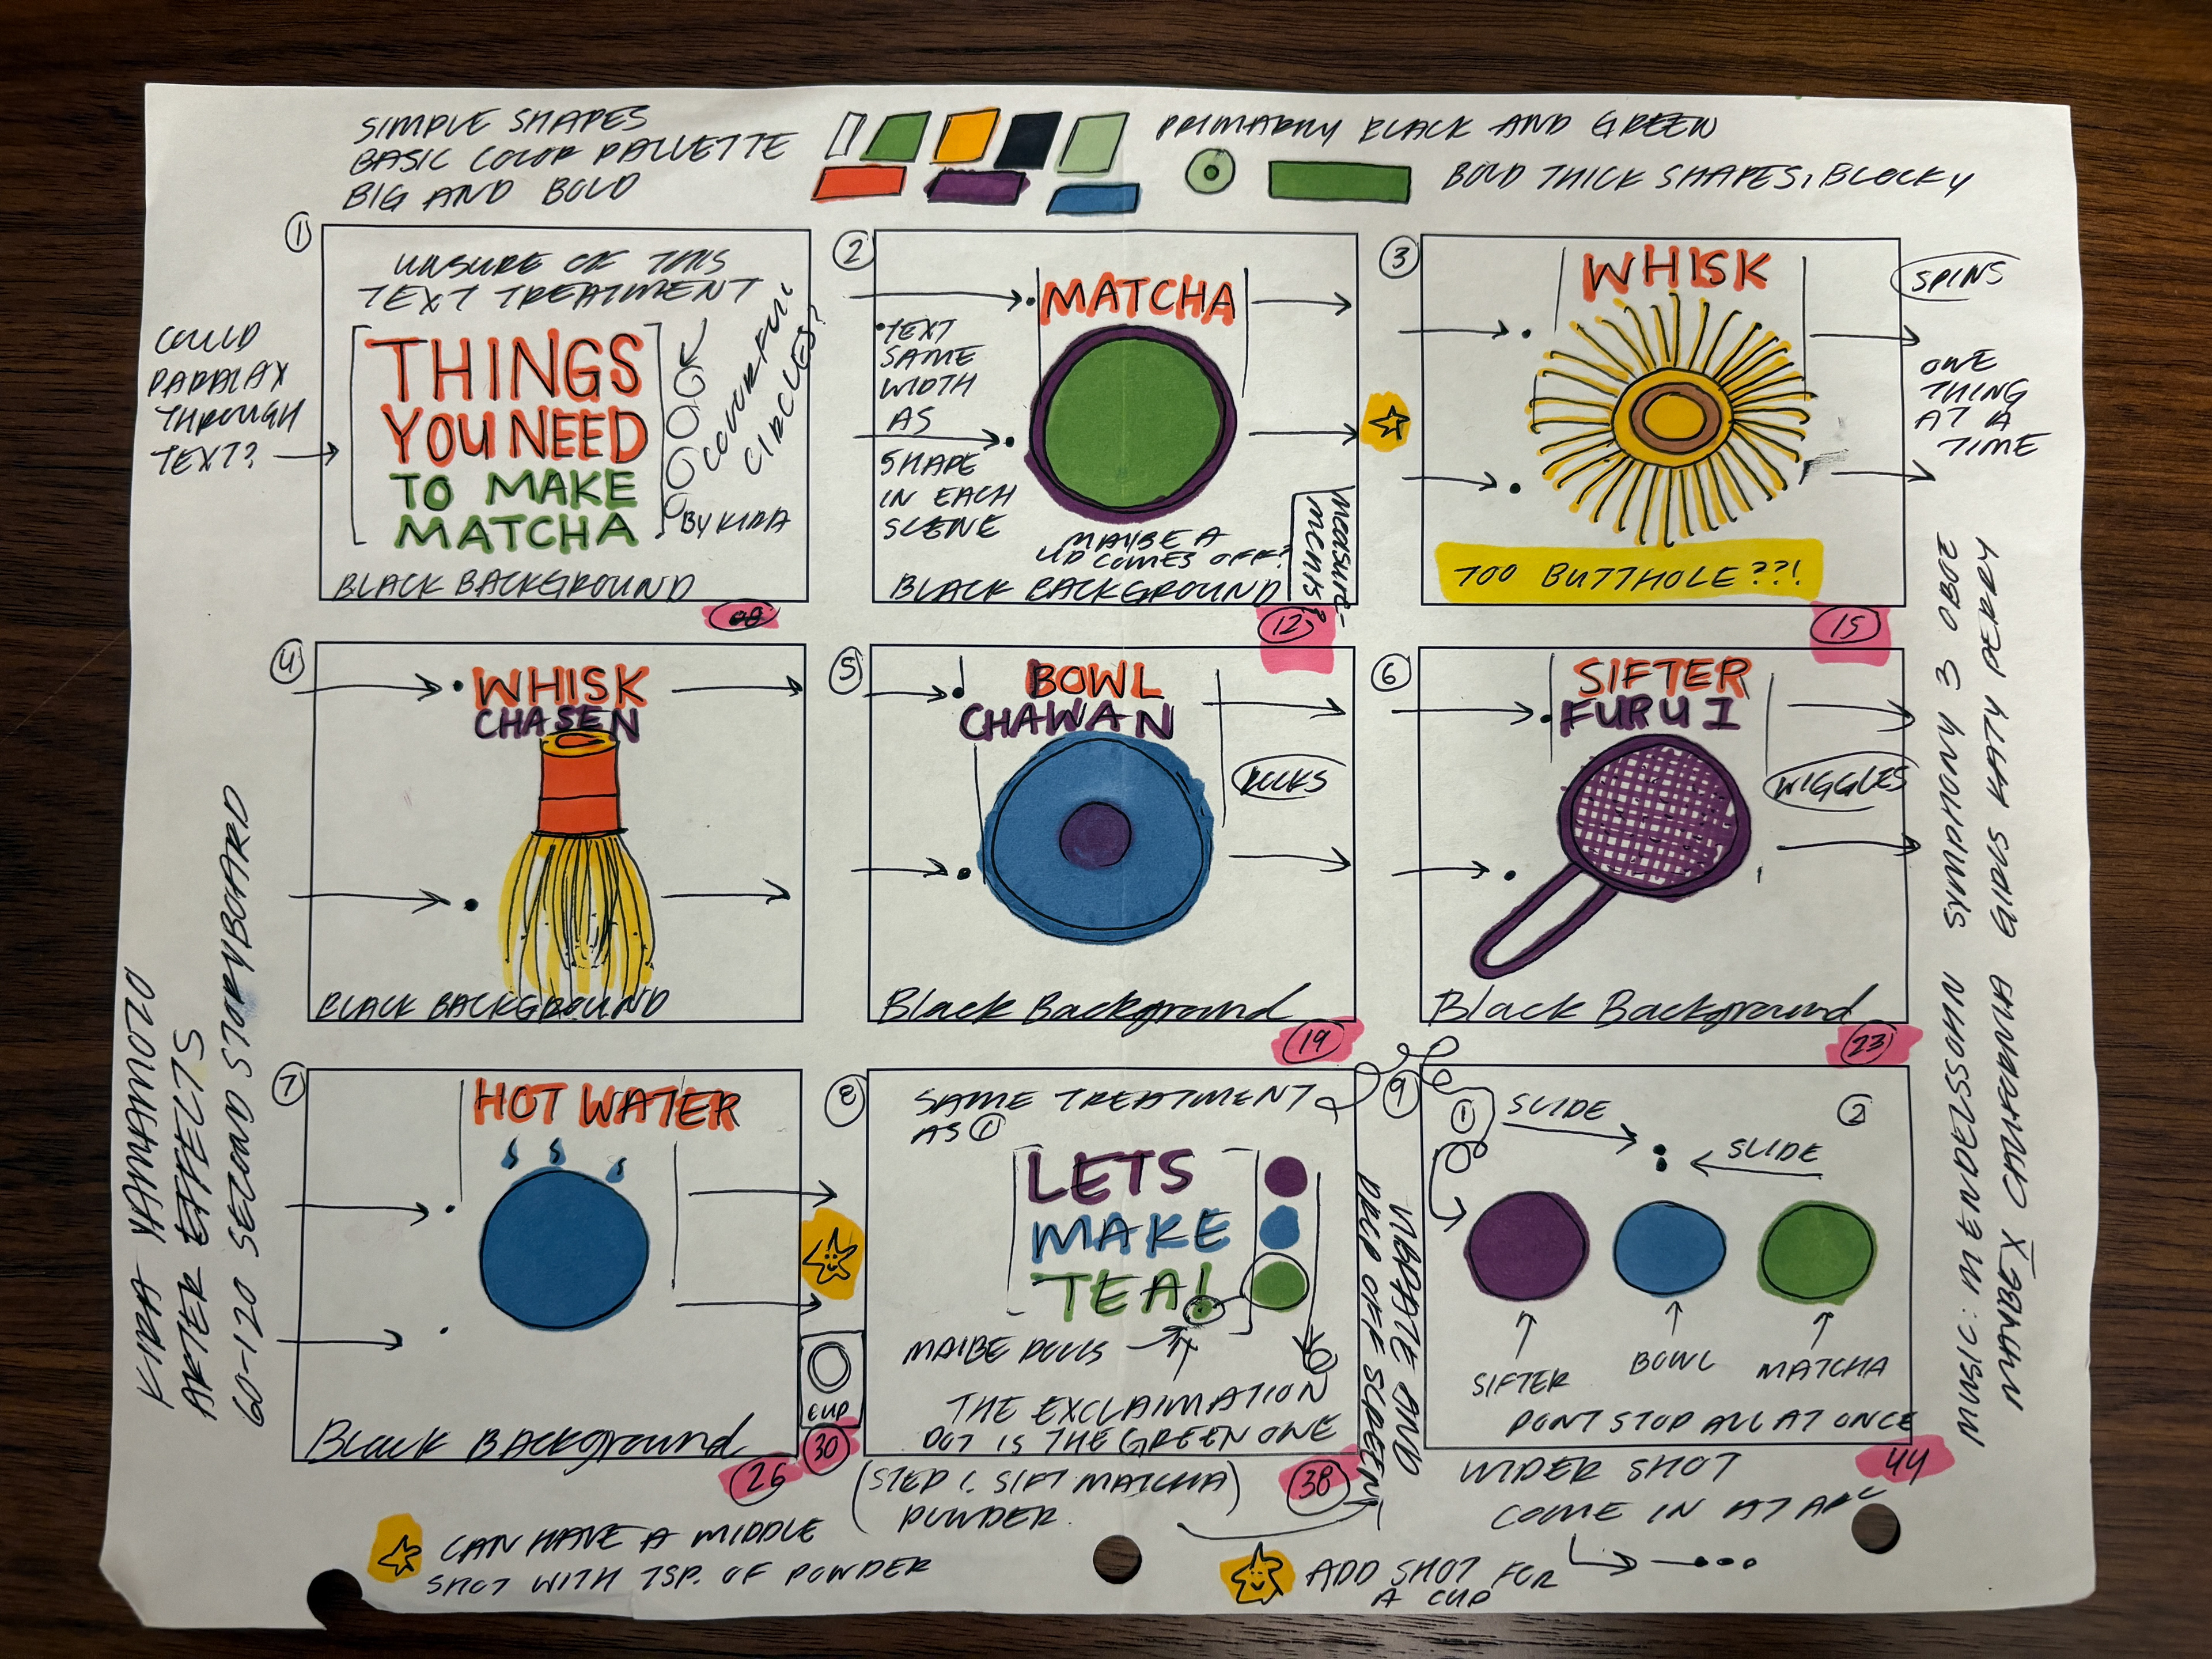 SIMPLE SHAPES
BASIC COLOR PALLETTE
BIG AND BOLD
PRIMARILY BLACK AND GREEN
BOLD THICK SHAPES, BLOCKY
1
UNSURE OF THIS
TEXT TREATMENT
COULD
PARALAX
THROUGH
TEXT?
THINGS
YOU NEED
TO MAKE
MATCHA
COLOURFUL
CIRCLES?
BY KIRA
BLACK BACKGROUND
2
MATCHA
TEXT
SAME
WIDTH
AS
SHAPE
IN EACH
SCENE
MAYBE A
LID COMES OFF?
MEASURE-
MENTS?
BLACK BACKGROUND
12
3
WHISK
SPINS
ONE
THING
AT A
TIME
TOO BUTTHOLE??!
15
4
WHISK
CHASEN
BLACK BACKGROUND
5
BOWL
CHAWAN
ROCKS
Black Background
19
6
SIFTER
FURUI
WIGGLES
Black Background
23
7
HOT WATER
Black Background
26
CUP
30
8
SAME TREATMENT
AS 1
LETS
MAKE
TEA!
MAIBE ROLLS
THE EXCLAIMATION
DOT IS THE GREEN ONE
(STEP 1. SIFT MATCHA)
POWDER.
38
VIBRATE AND
DROP OFF SCREEN
9
1
SLIDE
2
SLIDE
SIFTER
BOWL
MATCHA
DONT STOP ALL AT ONCE
44
WIDER SHOT
COME IN AT ARC
CAN HAVE A MIDDLE
SHOT WITH TSP. OF POWDER
ADD SHOT FOR
A CUP
KIRA YAMAMOTO
AFTER EFFECTS
60-120 SECOND STORYBOARD
MUSIC: MENDELSSOHN SYMPHONY 3 OBOE
MAYBE X CALIFORNIA GIRLS KATY PERRY